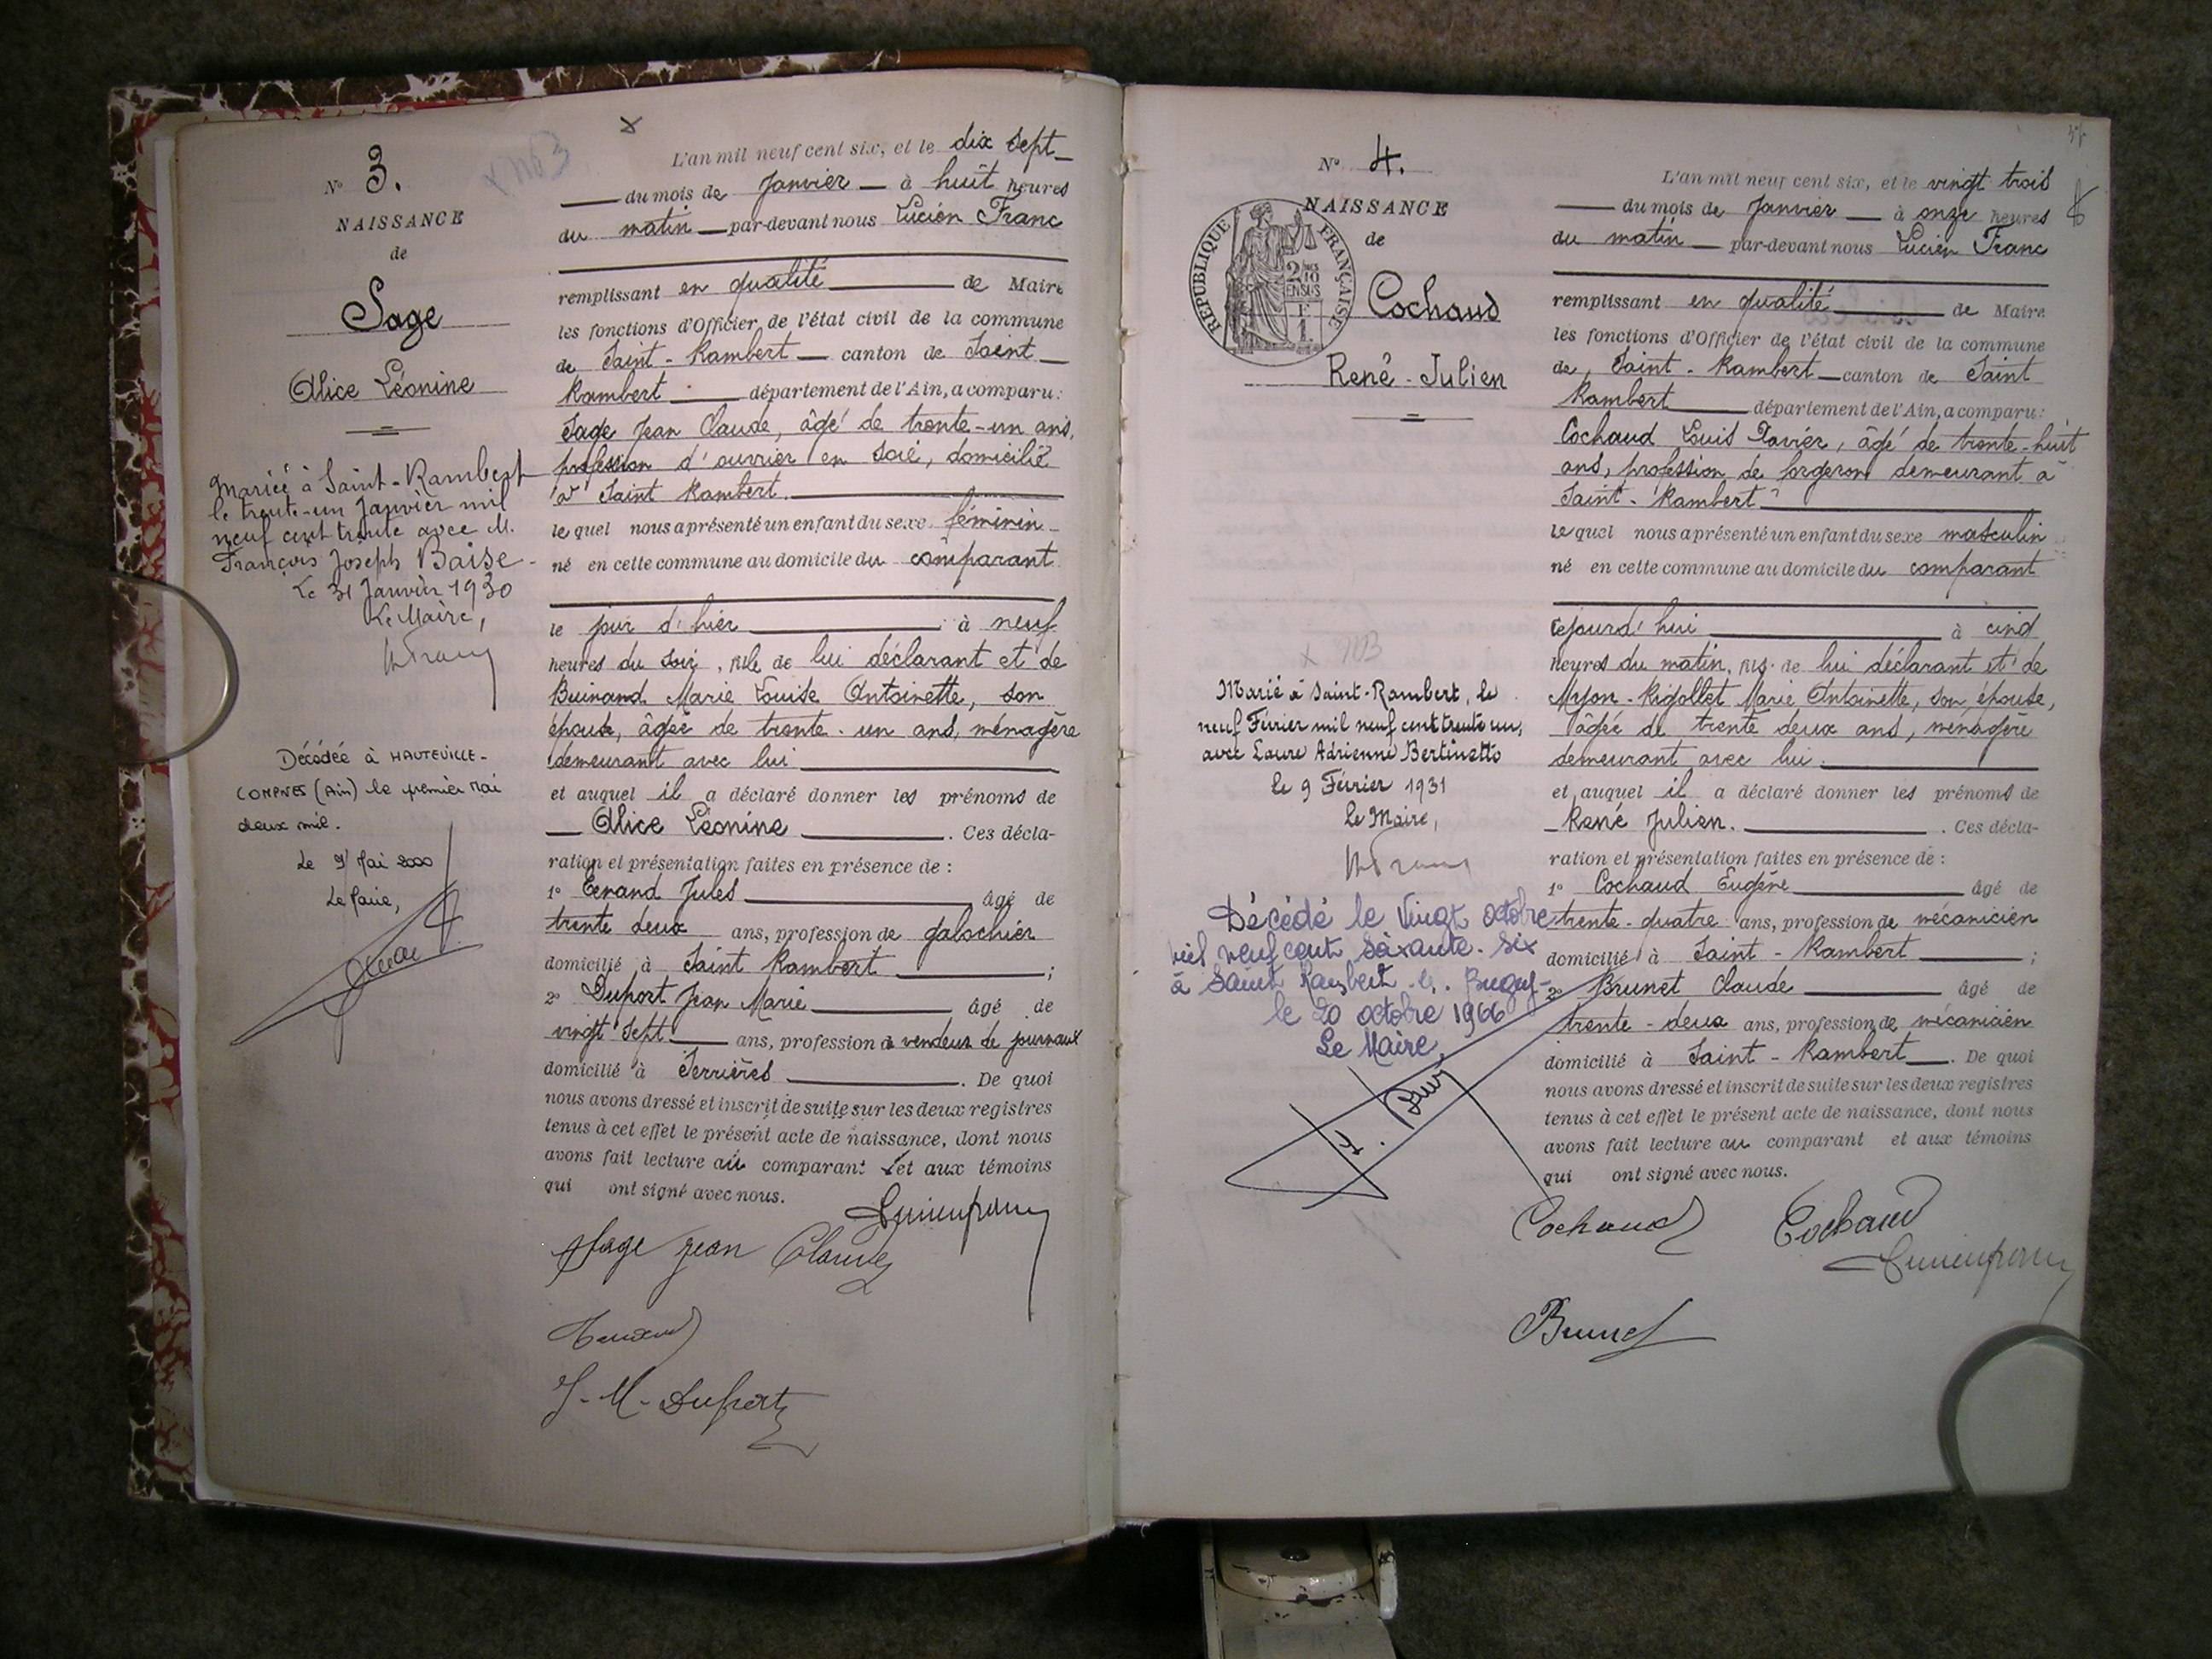 N° 3.
NAISSANCE
de
Sage
Alice Léonine
Mariée à Saint-Rambert
le trente-un Janvier mil
neuf cent trente avec M.
François Joseph Baise
Le 31 Janvier 1930
Le Maire,
Décédée à HAUTEVILLE-
LOMPNES (Ain) le premier Mai
deux mil.
Le 9 Mai 2000
Le Maire,
L'an mil neuf cent six, et le dix sept
du mois de Janvier à huit heures
du matin par-devant nous Lucien Franc
remplissant en qualité de Maire
les fonctions d'Officier de l'état civil de la commune
de Saint-Rambert canton de Saint
Rambert département de l'Ain, a comparu:
Sage Jean Claude, âgé de trente-un ans,
profession d'ouvrier en soie, domicilié
à Saint Rambert.
le quel nous a présenté un enfant du sexe féminin
né en cette commune au domicile du comparant
le jour d'hier à neuf
heures du soir, fille de lui déclarant et de
Buinand Marie Louise Antoinette, son
épouse, âgée de trente-un ans, ménagère
demeurant avec lui
et auquel il a déclaré donner les prénoms de
Alice Léonine. Ces décla-
ration et présentation faites en présence de :
1° Jules âgé de
trente deux ans, profession de galochier
domicilié à Saint Rambert ;
2° Duport Jean Marie âgé de
vingt sept ans, profession de vendeur de journaux
domicilié à Serrières. De quoi
nous avons dressé et inscrit de suite sur les deux registres
tenus à cet effet le présent acte de naissance, dont nous
avons fait lecture au comparant et aux témoins
qui ont signé avec nous.
Sage Jean Claude
J-M-Duport
N° 4.
NAISSANCE
de
REPUBLIQUE FRANÇAISE
2/10 EN SUS
Cochaud
René-Julien
Marié à Saint-Rambert, le
neuf Février mil neuf cent trente un,
avec Laure Adrienne Bertinetto
le 9 Février 1931
Le Maire,
Décédé le Vingt octobre
mil neuf cent soixante-six
à Saint Rambert en Bugey
le 20 octobre 1966
Le Maire,
L'an mil neuf cent six, et le vingt trois
du mois de Janvier à onze heures
du matin par-devant nous Lucien Franc
remplissant en qualité de Maire
les fonctions d'Officier de l'état civil de la commune
de Saint-Rambert canton de Saint
Rambert département de l'Ain, a comparu:
Cochaud Louis Xavier, âgé de trente-huit
ans, profession de forgeron demeurant à
Saint-Rambert
le quel nous a présenté un enfant du sexe masculin
né en cette commune au domicile du comparant
cejourd'hui à cinq
heures du matin, fils de lui déclarant et de
Myon-Rigollet Marie Antoinette, son épouse,
âgée de trente deux ans, ménagère
demeurant avec lui.
et auquel il a déclaré donner les prénoms de
René Julien. Ces décla-
ration et présentation faites en présence de :
1° Cochaud Eugène âgé de
trente-quatre ans, profession de mécanicien
domicilié à Saint-Rambert ;
2° Brunet Claude âgé de
trente-deux ans, profession de mécanicien
domicilié à Saint-Rambert. De quoi
nous avons dressé et inscrit de suite sur les deux registres
tenus à cet effet le présent acte de naissance, dont nous
avons fait lecture au comparant et aux témoins
qui ont signé avec nous.
Cochaud Cochaud
Brunet